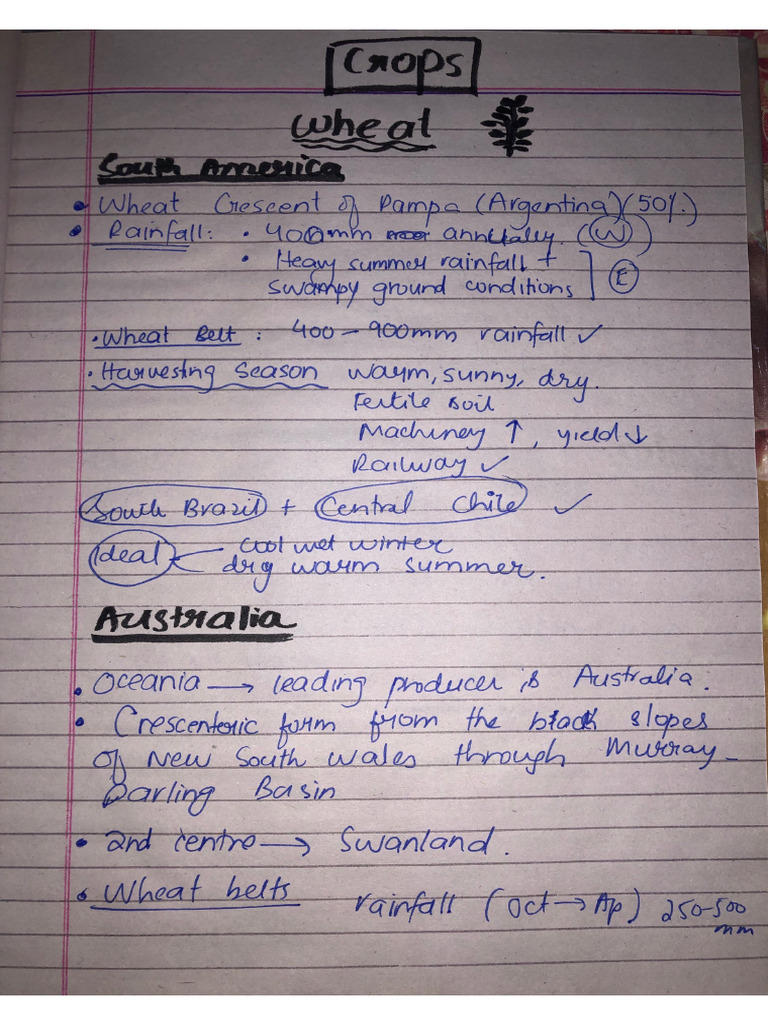 Crops
Wheat
South America
• Wheat Crescent of Pampa (Argentina) (50%)
• Rainfall: • 400mm annually. (W)
• Heavy summer rainfall +
swampy ground conditions ] (E)
• Wheat Belt : 400 – 900mm rainfall ✓
• Harvesting Season warm, sunny, dry.
Fertile soil
Machinery ↑, yield ↓
Railway ✓
South Brazil + Central Chile ✓
Ideal ← cool wet winter
dry warm summer.
Australia
• Oceania → leading producer is Australia.
• Crescenteric form from the black slopes
of New South Wales through Murray-
Darling Basin
• 2nd centre → Swanland.
• Wheat belts rainfall (Oct → Ap) 250-500
mm